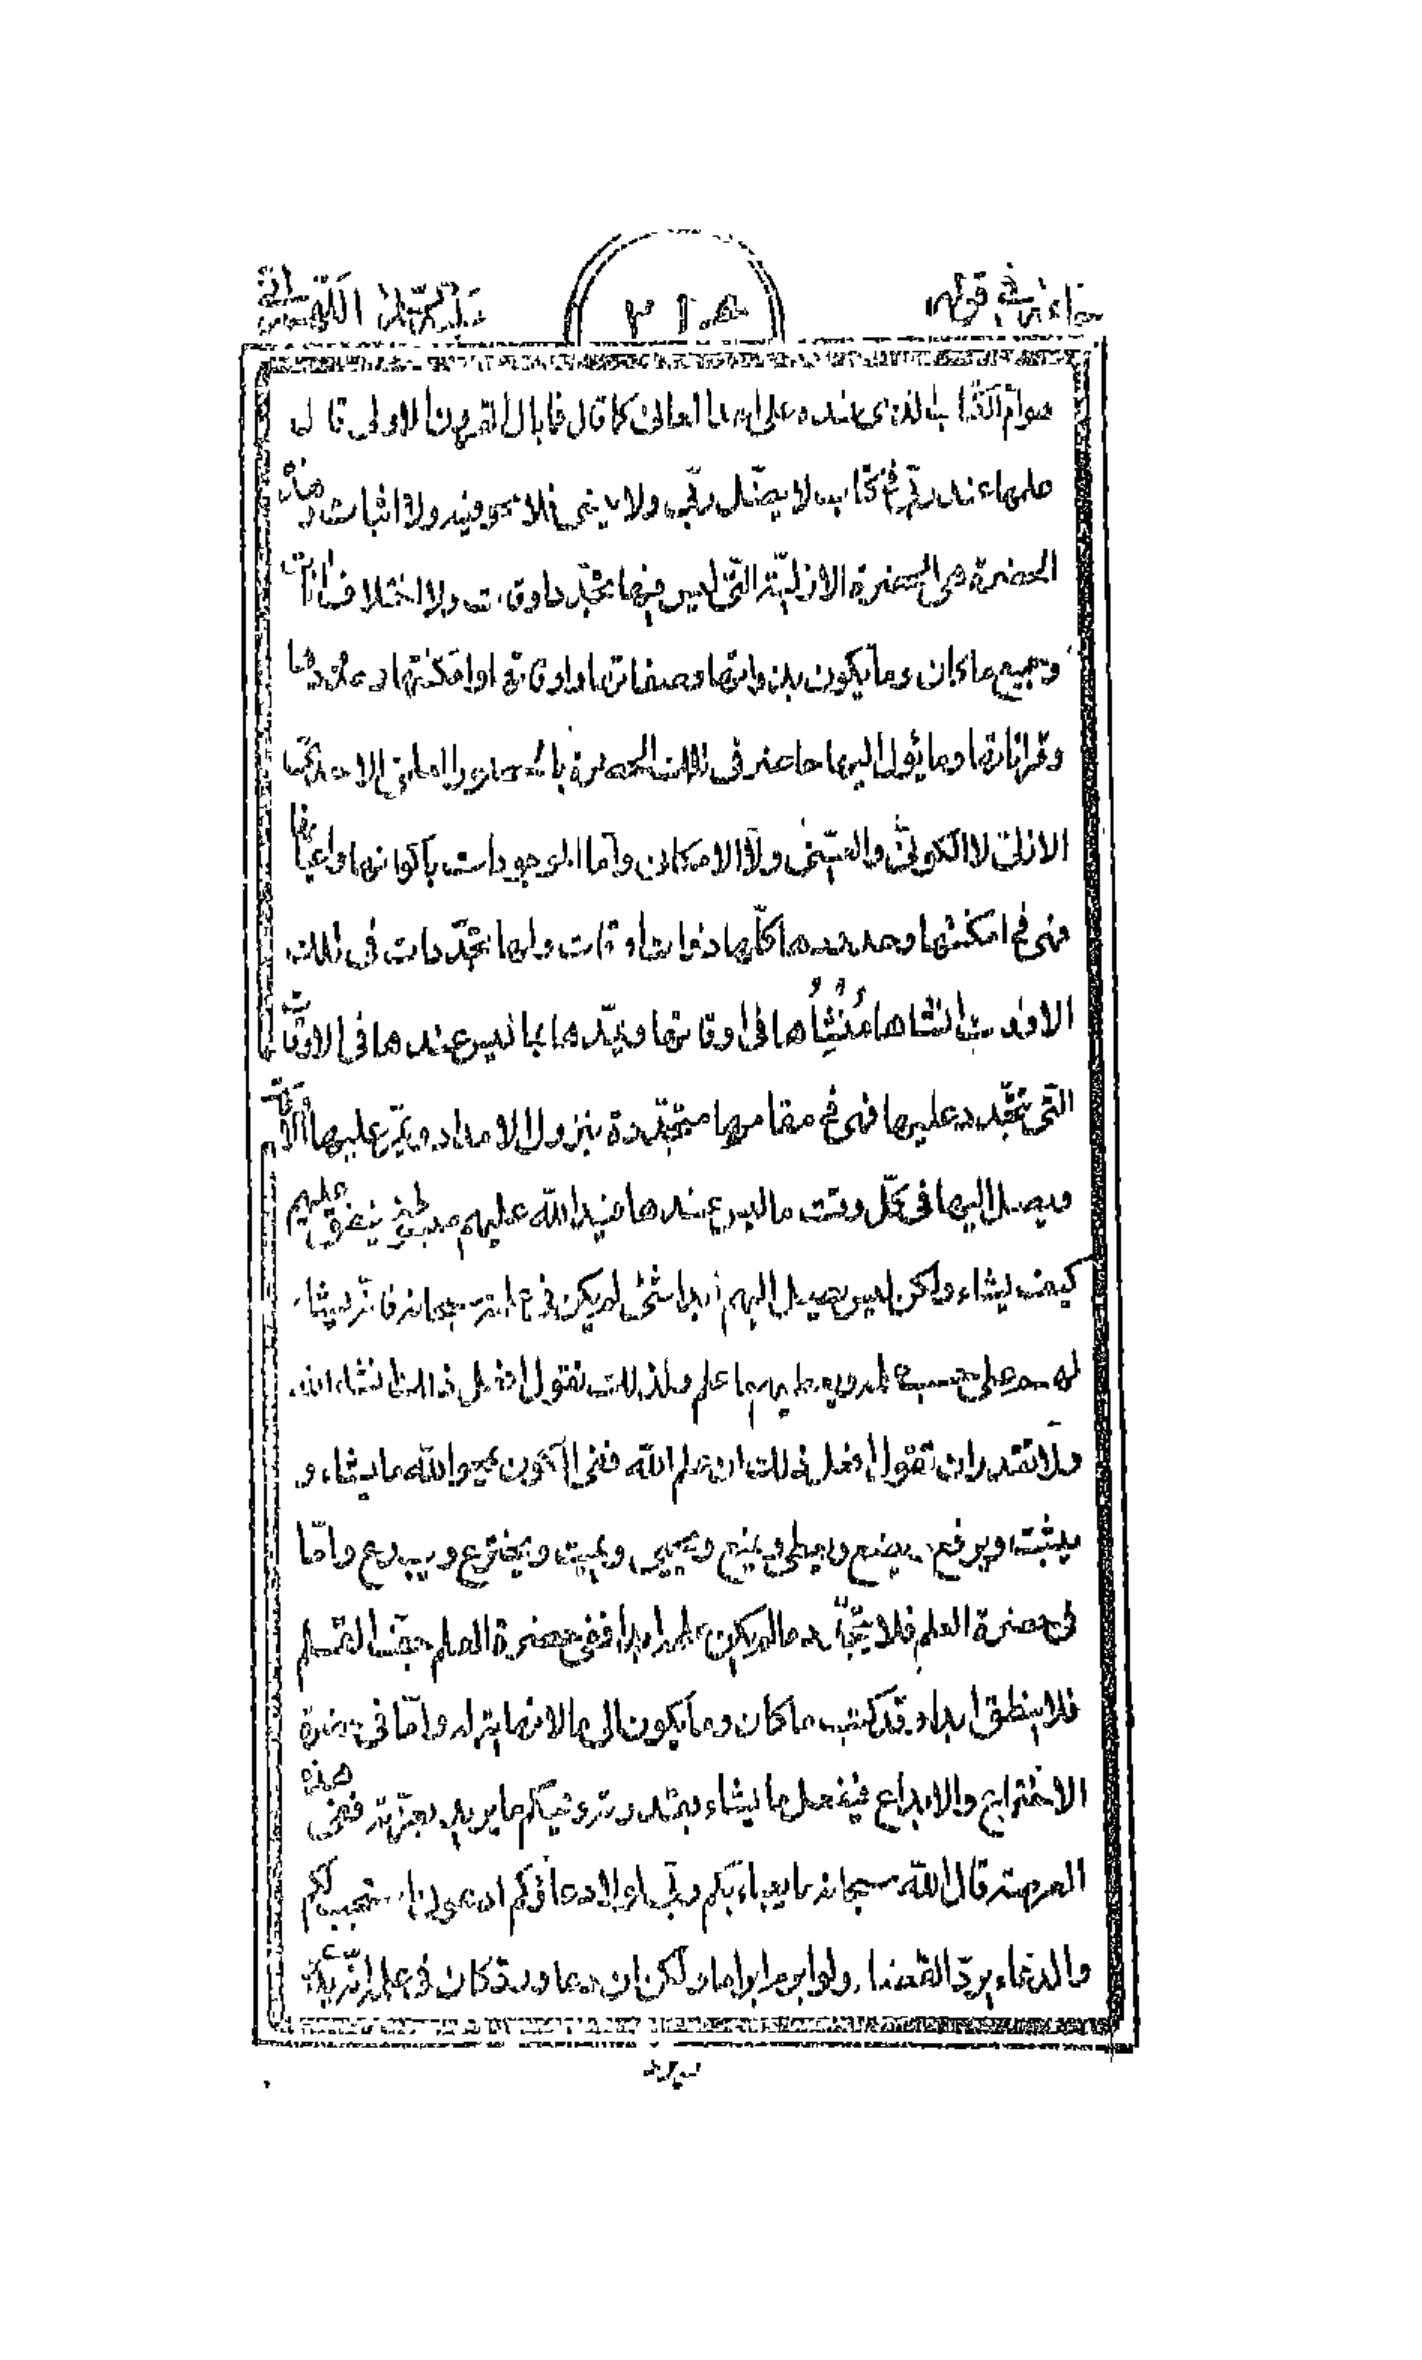 ٣١٥
هو ام الكتاب الذى عنده على ما قال فما بال القرون الاولى قال
علمها عند ربّى فى كتاب لا يضّل ربّى ولا ينسى فلا محو فيه ولا اثبات وهذه
الحضرة هى الحضرة الازليّة التّى ليس فيها تجدّد اوقات ولا اختلاف
وجميع ما كان وما يكون بذواتها وصفاتها واوقاتها وامكنتها وحدودها
وقراناتها وما يؤل اليها حاضر فى تلك الحضرة
الازلى لا الكونّى والعينى ولا الامكان وامّا الموجودات باكوانها واعيانها
فهى فى امكنتها وحدودها كلّها ذوات اوقات ولها تجدّدات فى تلك
انشاها مُنْشِئُها فى اوقاتها ويمدّها بما ليس عندها فى الاوقات
التّى تتجدد عليها فهى فى مقامها متجدّدة بنزول الامداد ويمرّ عليها
ويصل اليها فى كلّ وقت ما ليس عندها فيد الله عليهم مبسوطة ينفق عليهم
كيف يشاء ولكن ليس يصل اليهم ابدا شئ لم يكن فى علمه سبحانه فانّه يشاء
لهم على حسب علمه ويعطيهم بما علم ولذلك نقول افعل ذلك ان شاء الله
ولا تقدر ان تقول افعل ذلك ان علم الله ففى الكون يمحو الله ما يشاء و
يثبت ويرفع ويضع ويعطى ويمنع ويحيى ويميت ويخترع ويبدع وامّا
فى حضرة العلم فلا يتجدّد ما لم يكن علمه ابدا ففى حضرة العلم جفّ القلم
فلا ينطق ابدا وقد كتب ما كان وما يكون الى ما لا نهاية له وامّا فى حضرة
الاختراع والابداع فيفعل ما يشاء بقدرته ويحكم ما يريد بعزّته ففى هذه
العرصة قال الله سبحانه ما يعبأ بكم ربّى لولا دعاؤكم ادعونى استجب لكم
والدعاء يردّ القضاء ولو ابرم ابراما ولكن ان دعا وردّ كان فى علمه انّه